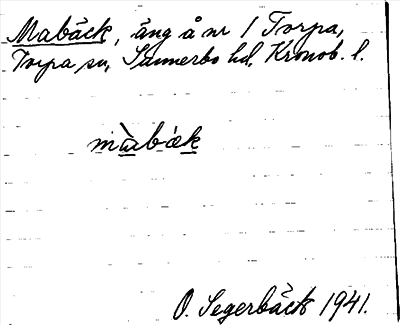 Mabäck, äng å nr 1 Torpa,
Torpa sn, Sunnerbo hd, Kronob. l.
màbæ̀k
O. Segerbäck 1941.